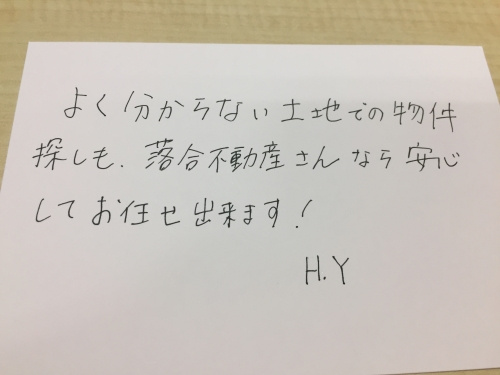 よく分からない土地での物件
探しも、落合不動産さんなら安心
してお任せ出来ます!
H.Y